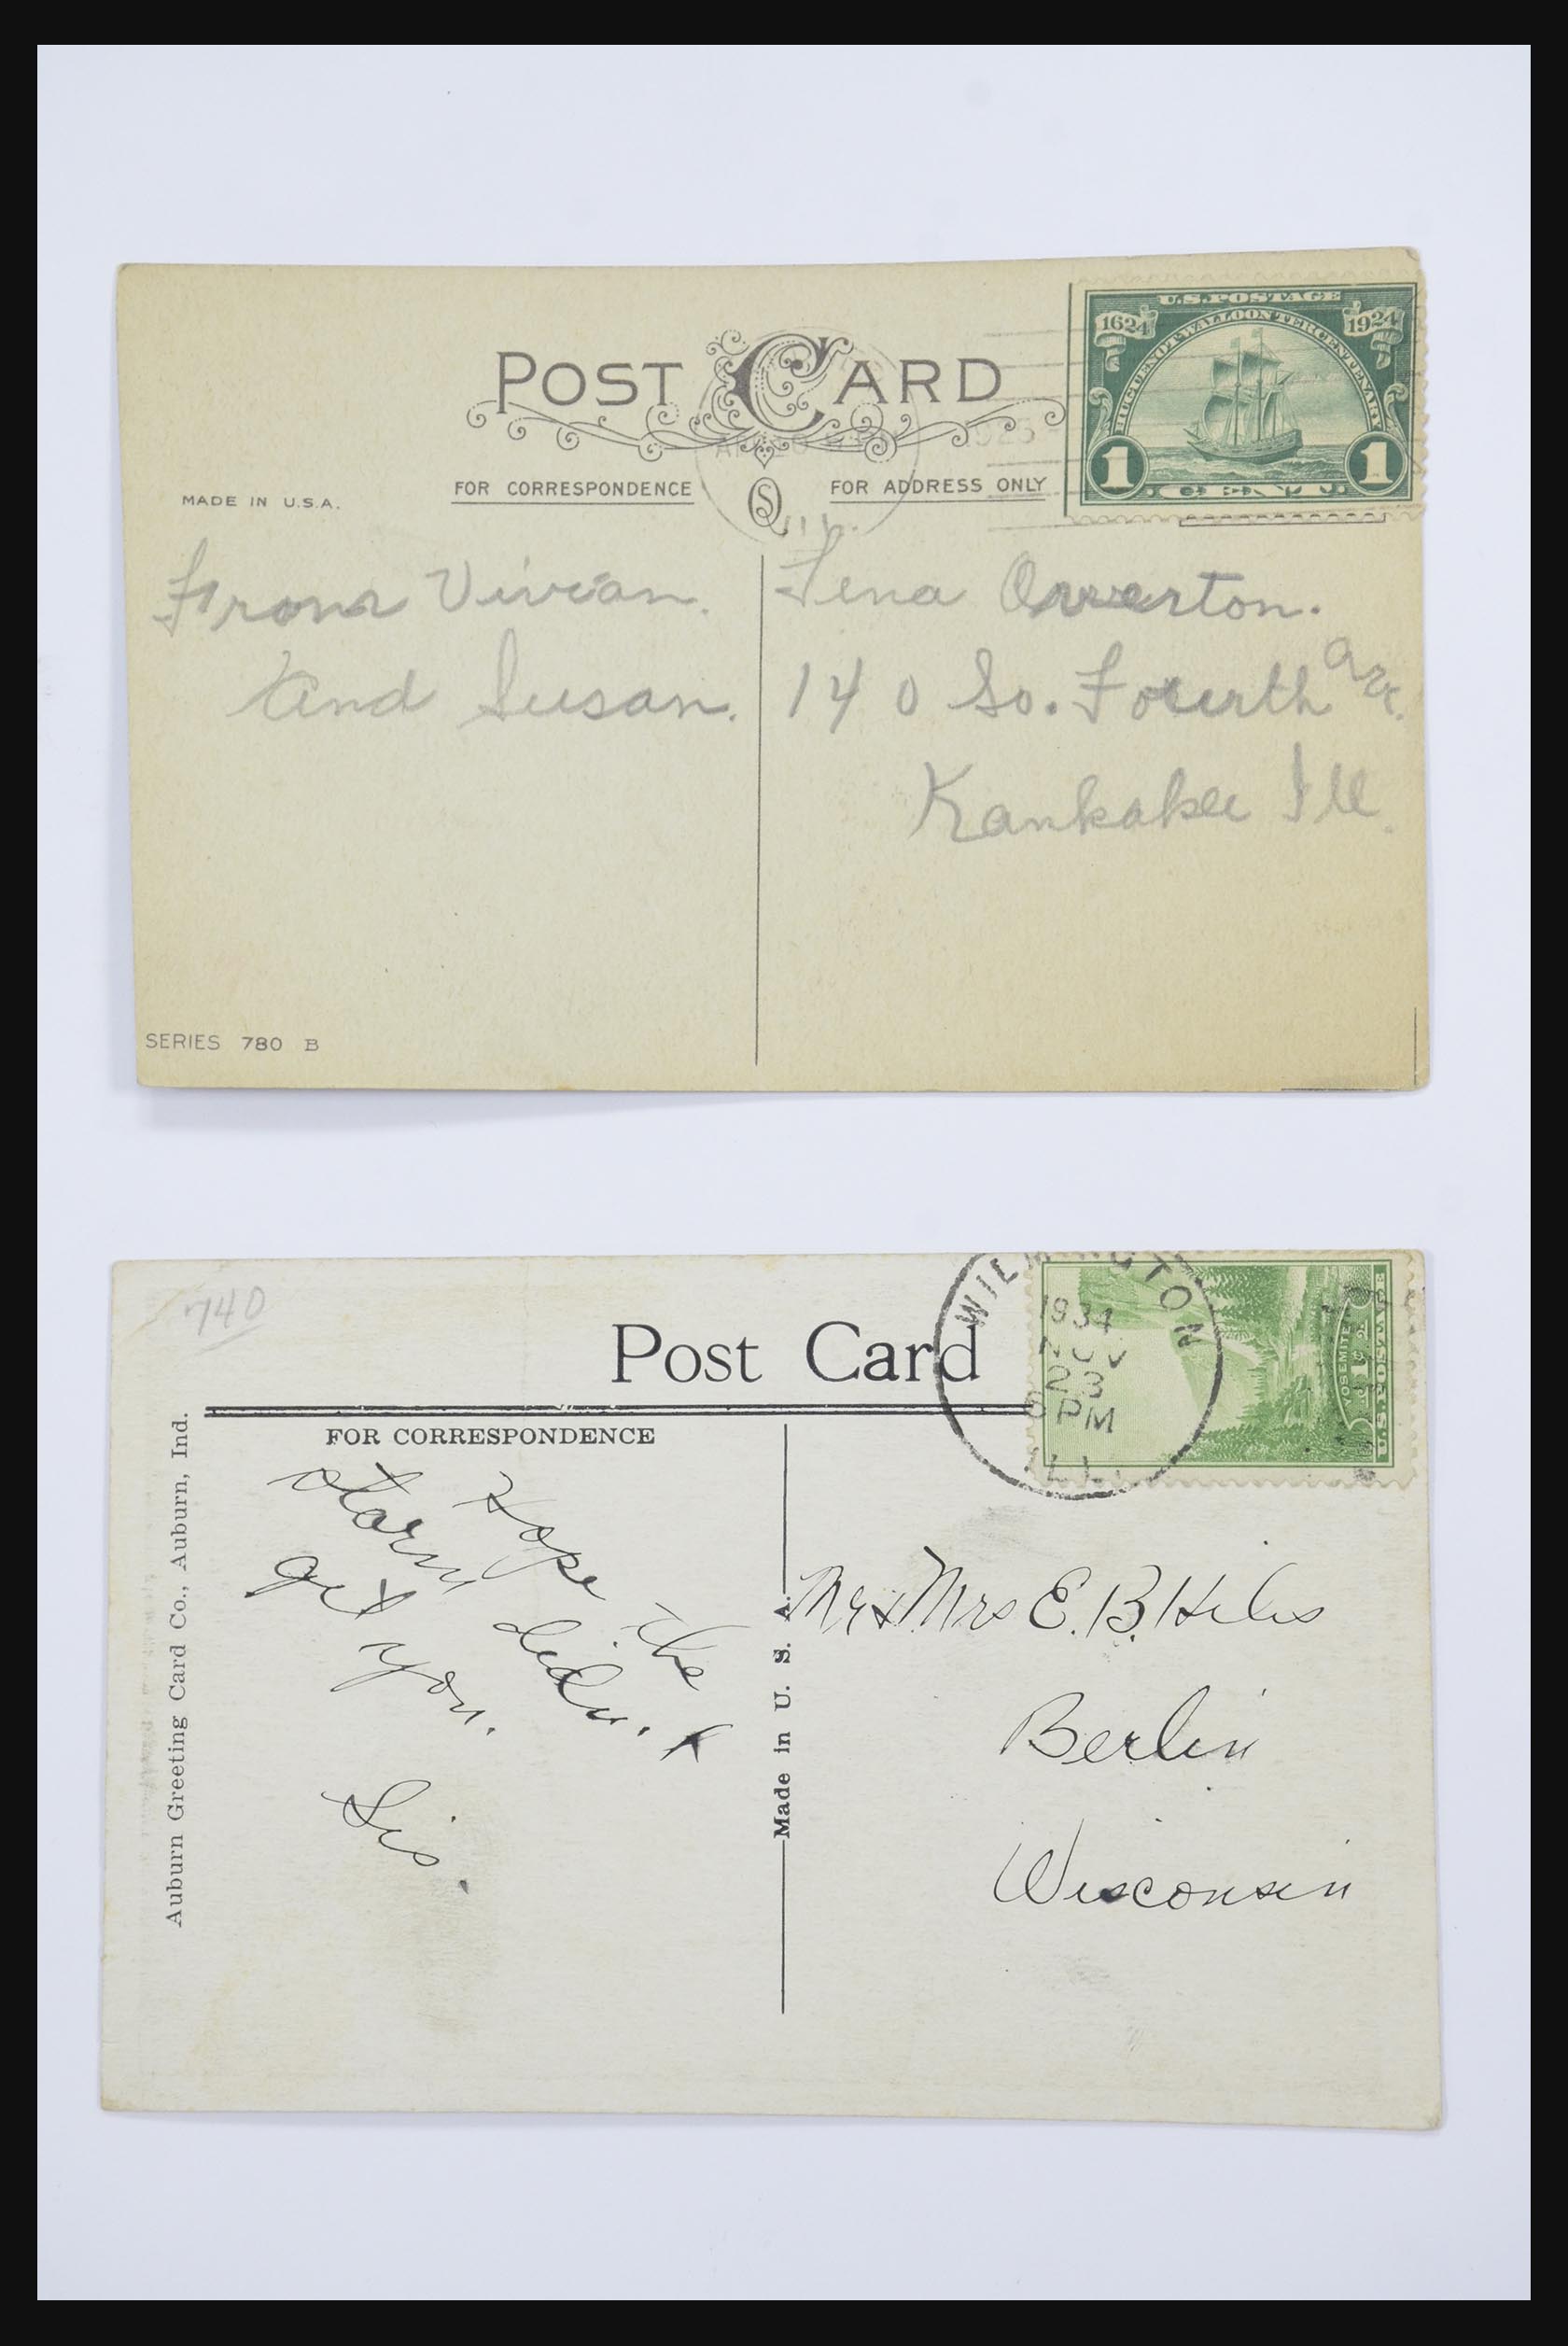 U.S. POSTAGE
1624 1924
HUGUENOT-WALLOON TERCENTENARY
1 CENT 1
POST CARD
1925
MADE IN U.S.A.
FOR CORRESPONDENCE
FOR ADDRESS ONLY
From Vivian.
And Susan.
Lena Overton.
140 So. Fourth Ave.
Kankakee Ill.
SERIES 780 B
740
Post Card
WILMINGTON
1934
NOV
23
PM
ILL.
YOSEMITE
U.S. POSTAGE
FOR CORRESPONDENCE
Auburn Greeting Card Co., Auburn, Ind.
Hope the
storm didn't
get you.
Sis.
Made in U. S. A.
Mr & Mrs E. B. Hiles
Berlin
Wisconsin